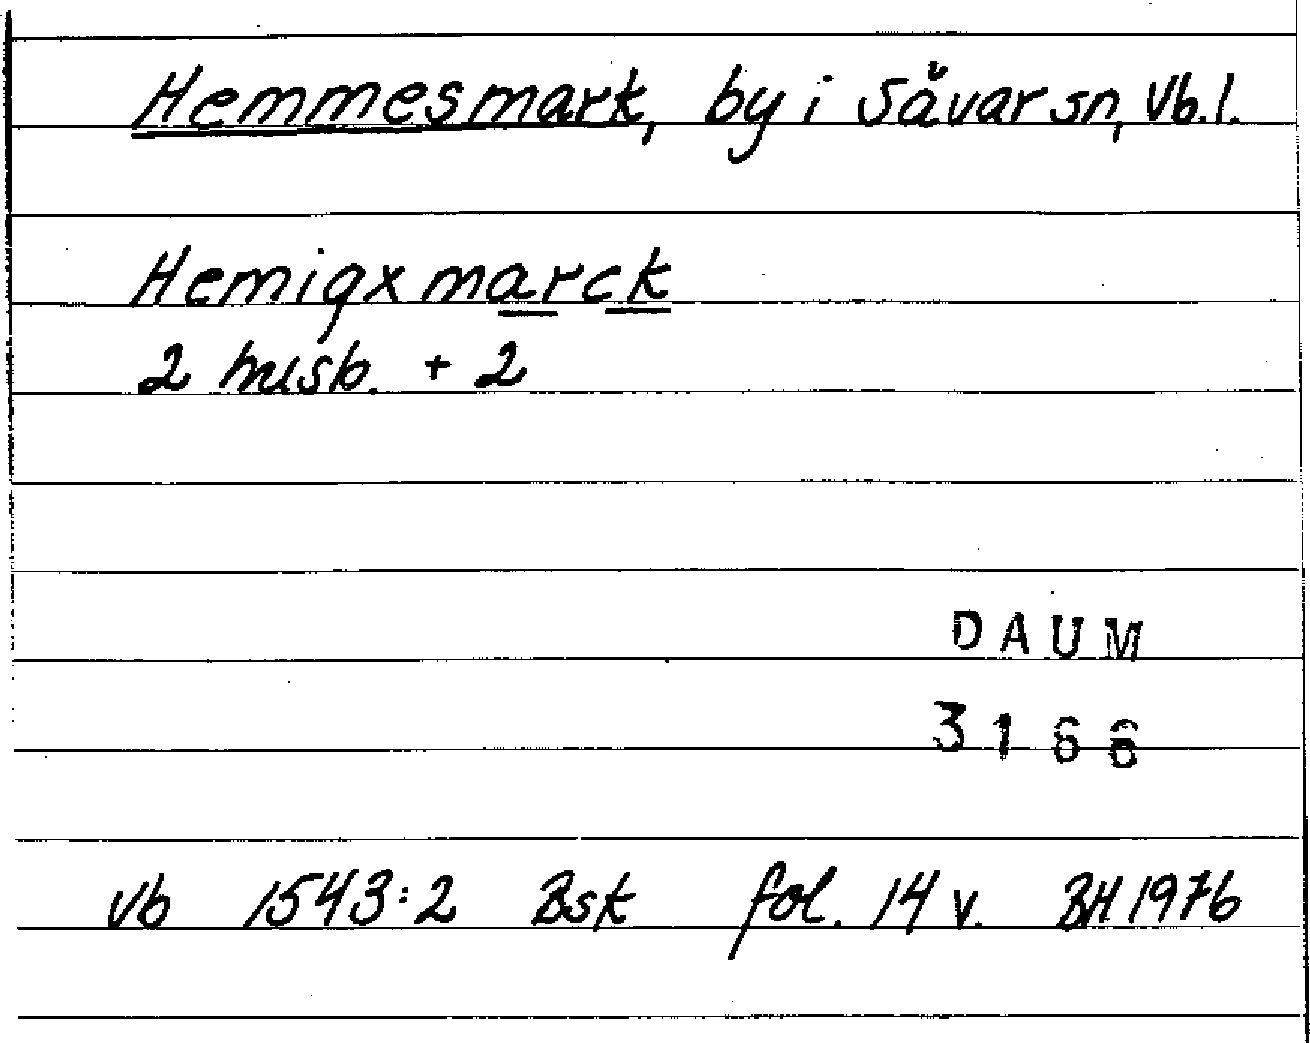 Hemmesmark, by i Sävar sn, Vb. l.
Hemigxmarck
2 husb. + 2
DAUM
3166
Vb 1543:2 Bsk fol. 14 v. BH 1976